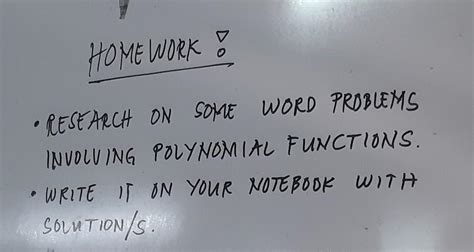 HOMEWORK !
• RESEARCH ON SOME WORD PROBLEMS
INVOLVING POLYNOMIAL FUNCTIONS.
• WRITE IT ON YOUR NOTEBOOK WITH
SOLUTION/S.